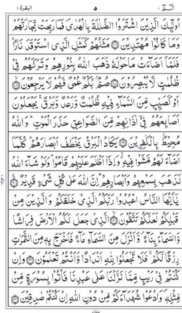 الٓمّٓ ۵ البقرة
اُولٰٓئِكَ الَّذِيْنَ اشْتَرَوُا الضَّلٰلَةَ بِالْهُدٰى فَمَا رَبِحَتْ تِّجَارَتُهُمْ
وَمَا كَانُوْا مُهْتَدِيْنَ مَثَلُهُمْ كَمَثَلِ الَّذِى اسْتَوْقَدَ نَارًا
فَلَمَّآ اَضَآءَتْ مَا حَوْلَهٗ ذَهَبَ اللّٰهُ بِنُوْرِهِمْ وَتَرَكَهُمْ فِيْ
ظُلُمٰتٍ لَّا يُبْصِرُوْنَ صُمٌّۢ بُكْمٌ عُمْيٌ فَهُمْ لَا يَرْجِعُوْنَ
اَوْ كَصَيِّبٍ مِّنَ السَّمَآءِ فِيْهِ ظُلُمٰتٌ وَّرَعْدٌ وَّبَرْقٌ يَجْعَلُوْنَ
اَصَابِعَهُمْ فِيْٓ اٰذَانِهِمْ مِّنَ الصَّوَاعِقِ حَذَرَ الْمَوْتِ وَاللّٰهُ
مُحِيْطٌۢ بِالْكٰفِرِيْنَ يَكَادُ الْبَرْقُ يَخْطَفُ اَبْصَارَهُمْ كُلَّمَآ
اَضَآءَ لَهُمْ مَّشَوْا فِيْهِ وَاِذَآ اَظْلَمَ عَلَيْهِمْ قَامُوْا وَلَوْ شَآءَ اللّٰهُ
لَذَهَبَ بِسَمْعِهِمْ وَاَبْصَارِهِمْ اِنَّ اللّٰهَ عَلٰى كُلِّ شَيْءٍ قَدِيْرٌ
يٰٓاَيُّهَا النَّاسُ اعْبُدُوْا رَبَّكُمُ الَّذِيْ خَلَقَكُمْ وَالَّذِيْنَ مِنْ
قَبْلِكُمْ لَعَلَّكُمْ تَتَّقُوْنَ الَّذِيْ جَعَلَ لَكُمُ الْاَرْضَ فِرَاشًا
وَّالسَّمَآءَ بِنَآءً وَّاَنْزَلَ مِنَ السَّمَآءِ مَآءً فَاَخْرَجَ بِهٖ مِنَ الثَّمَرٰتِ
رِزْقًا لَّكُمْ فَلَا تَجْعَلُوْا لِلّٰهِ اَنْدَادًا وَّاَنْتُمْ تَعْلَمُوْنَ وَاِنْ
كُنْتُمْ فِيْ رَيْبٍ مِّمَّا نَزَّلْنَا عَلٰى عَبْدِنَا فَاْتُوْا بِسُوْرَةٍ مِّنْ
مِّثْلِهٖ وَادْعُوْا شُهَدَآءَكُمْ مِّنْ دُوْنِ اللّٰهِ اِنْ كُنْتُمْ صٰدِقِيْنَ